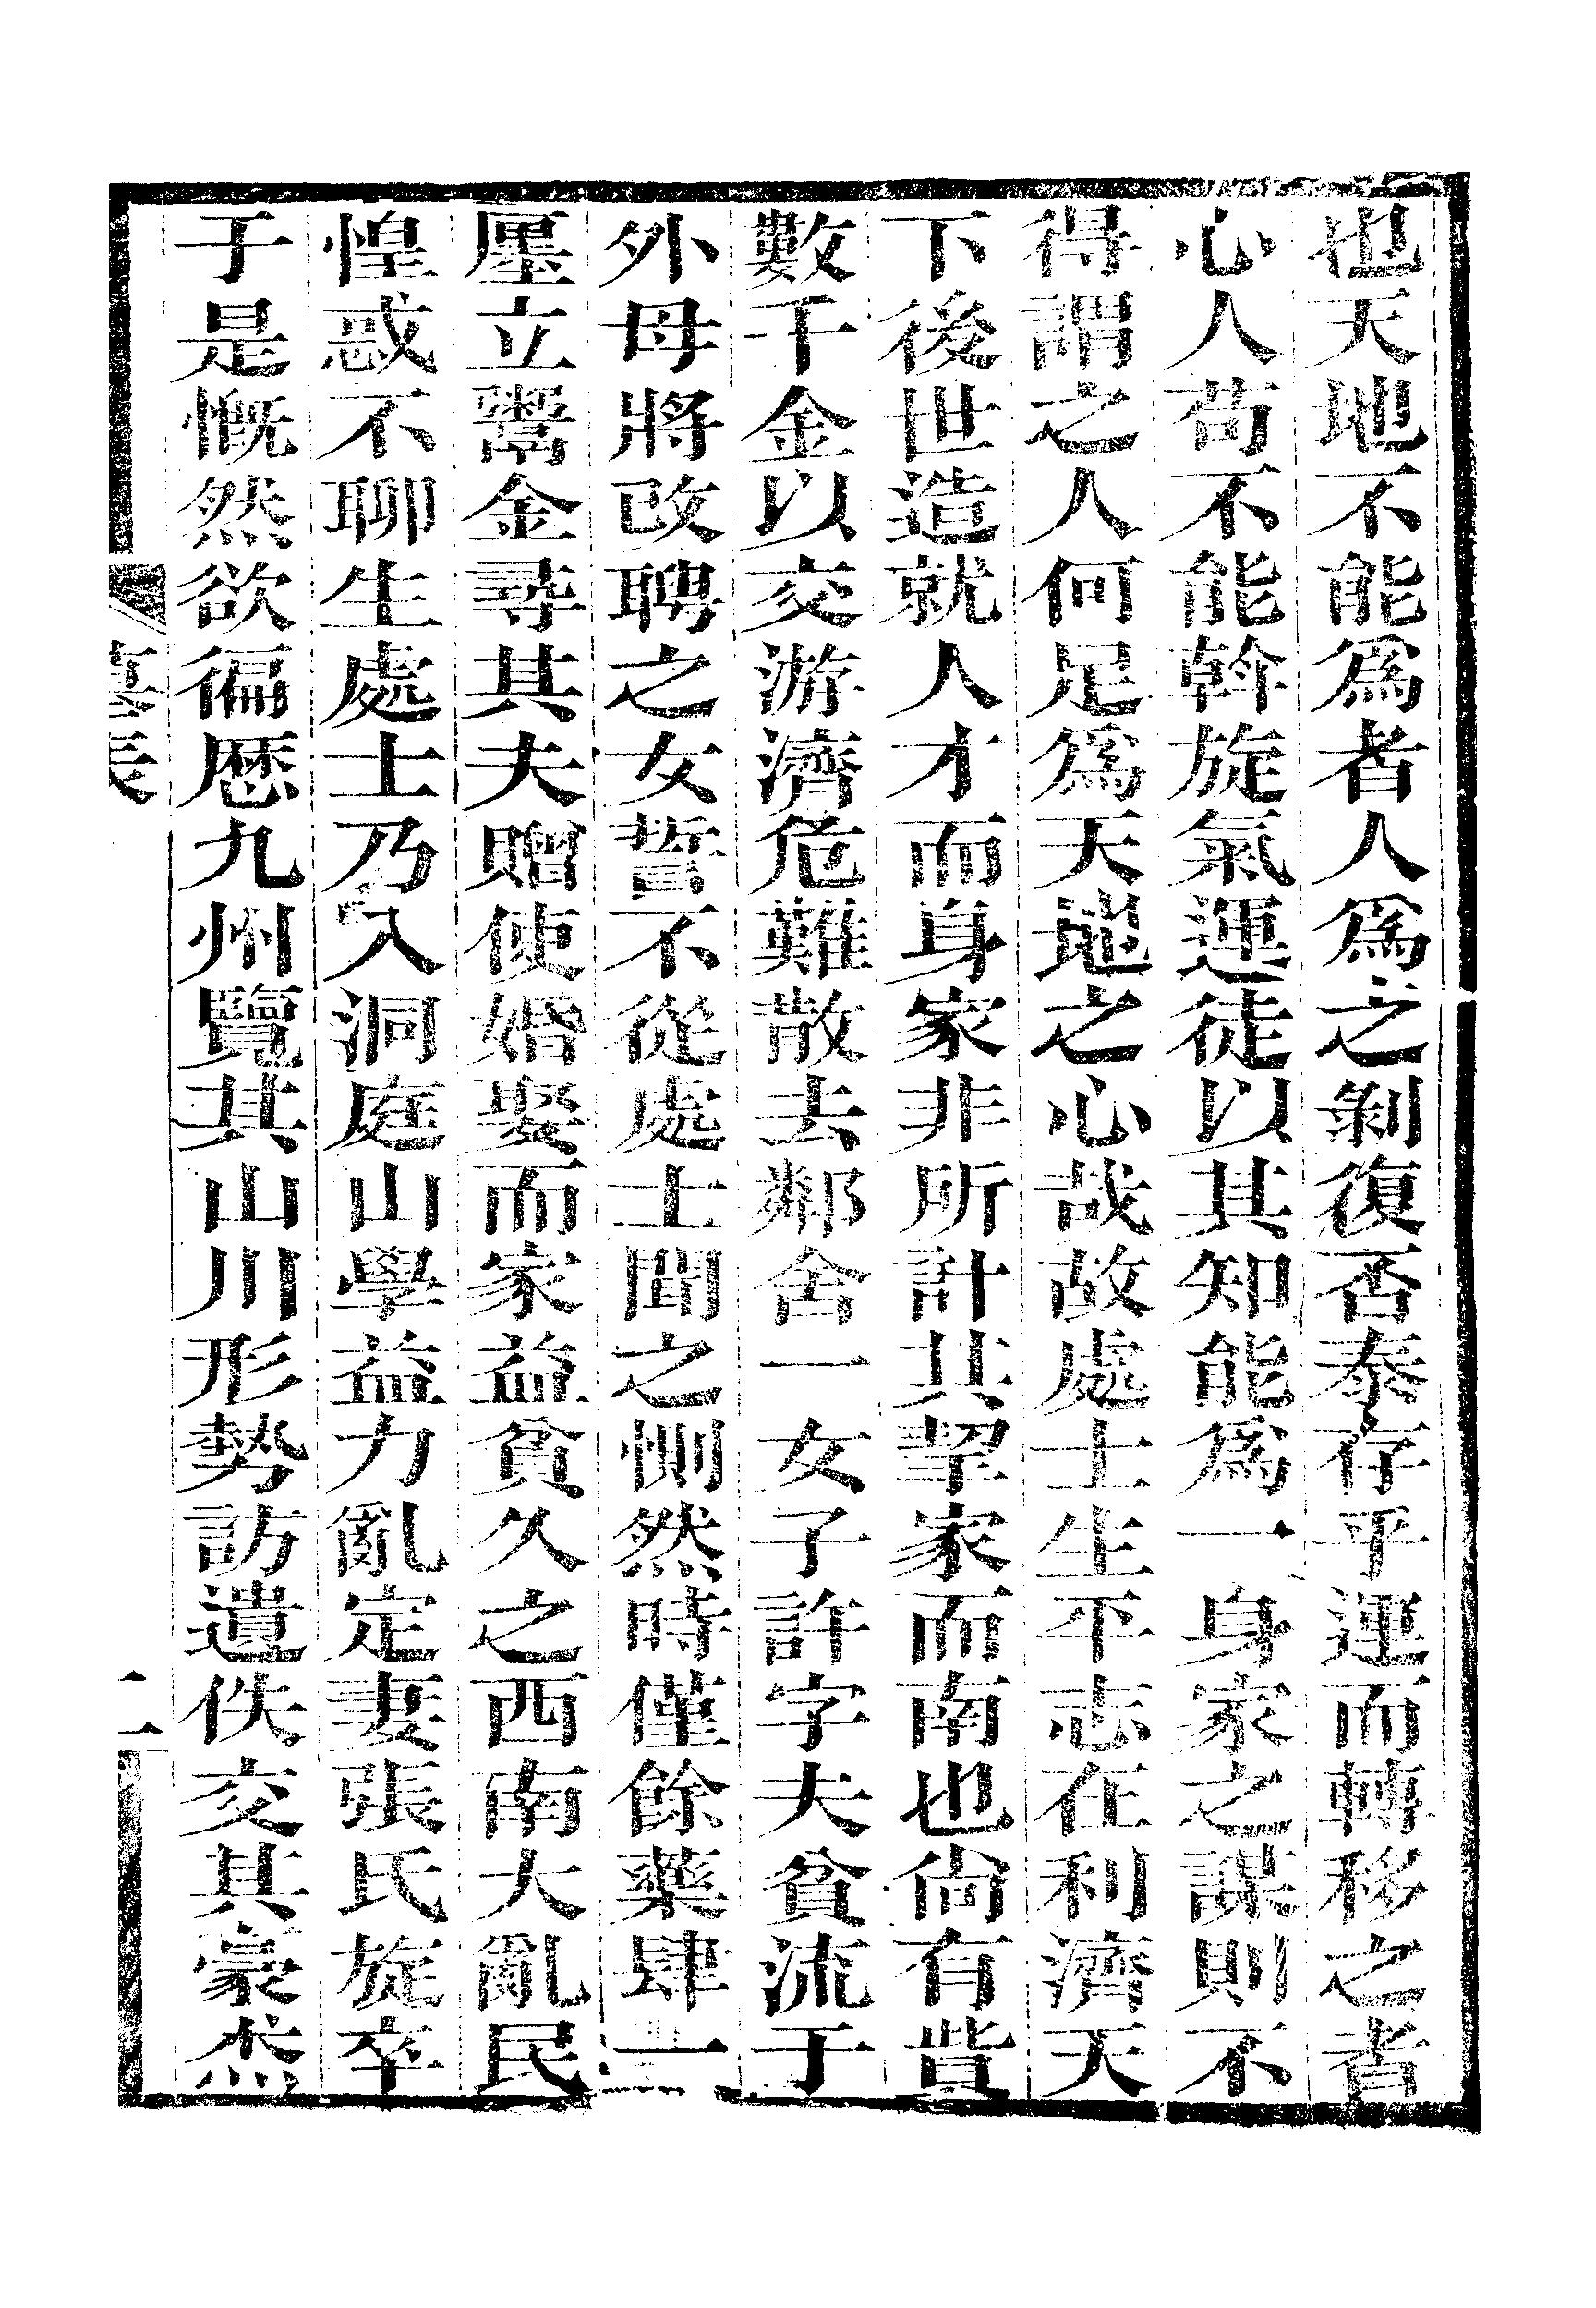 也天地不能爲者人爲之剝復否泰存乎運而轉移之者
心人苟不能斡旋氣運徒以其知能爲一身家之謀則不
得謂之人何足爲天地之心哉故處士生平志在利濟天
下後世造就人才而身家非所計其挈家而南也尚有貲
數千金以交游濟危難散去鄰舍一女子許字夫貧流于
外母將改聘之女誓不從處士聞之惻然時僅餘藥肆一
廛立鬻金尋其夫贈使婚娶而家益貧久之西南大亂民
惶惑不聊生處士乃入洞庭山學益力亂定妻張氏旋卒
于是慨然欲徧歷九州覽其山川形勢訪遺佚交其豪杰
墓表
二